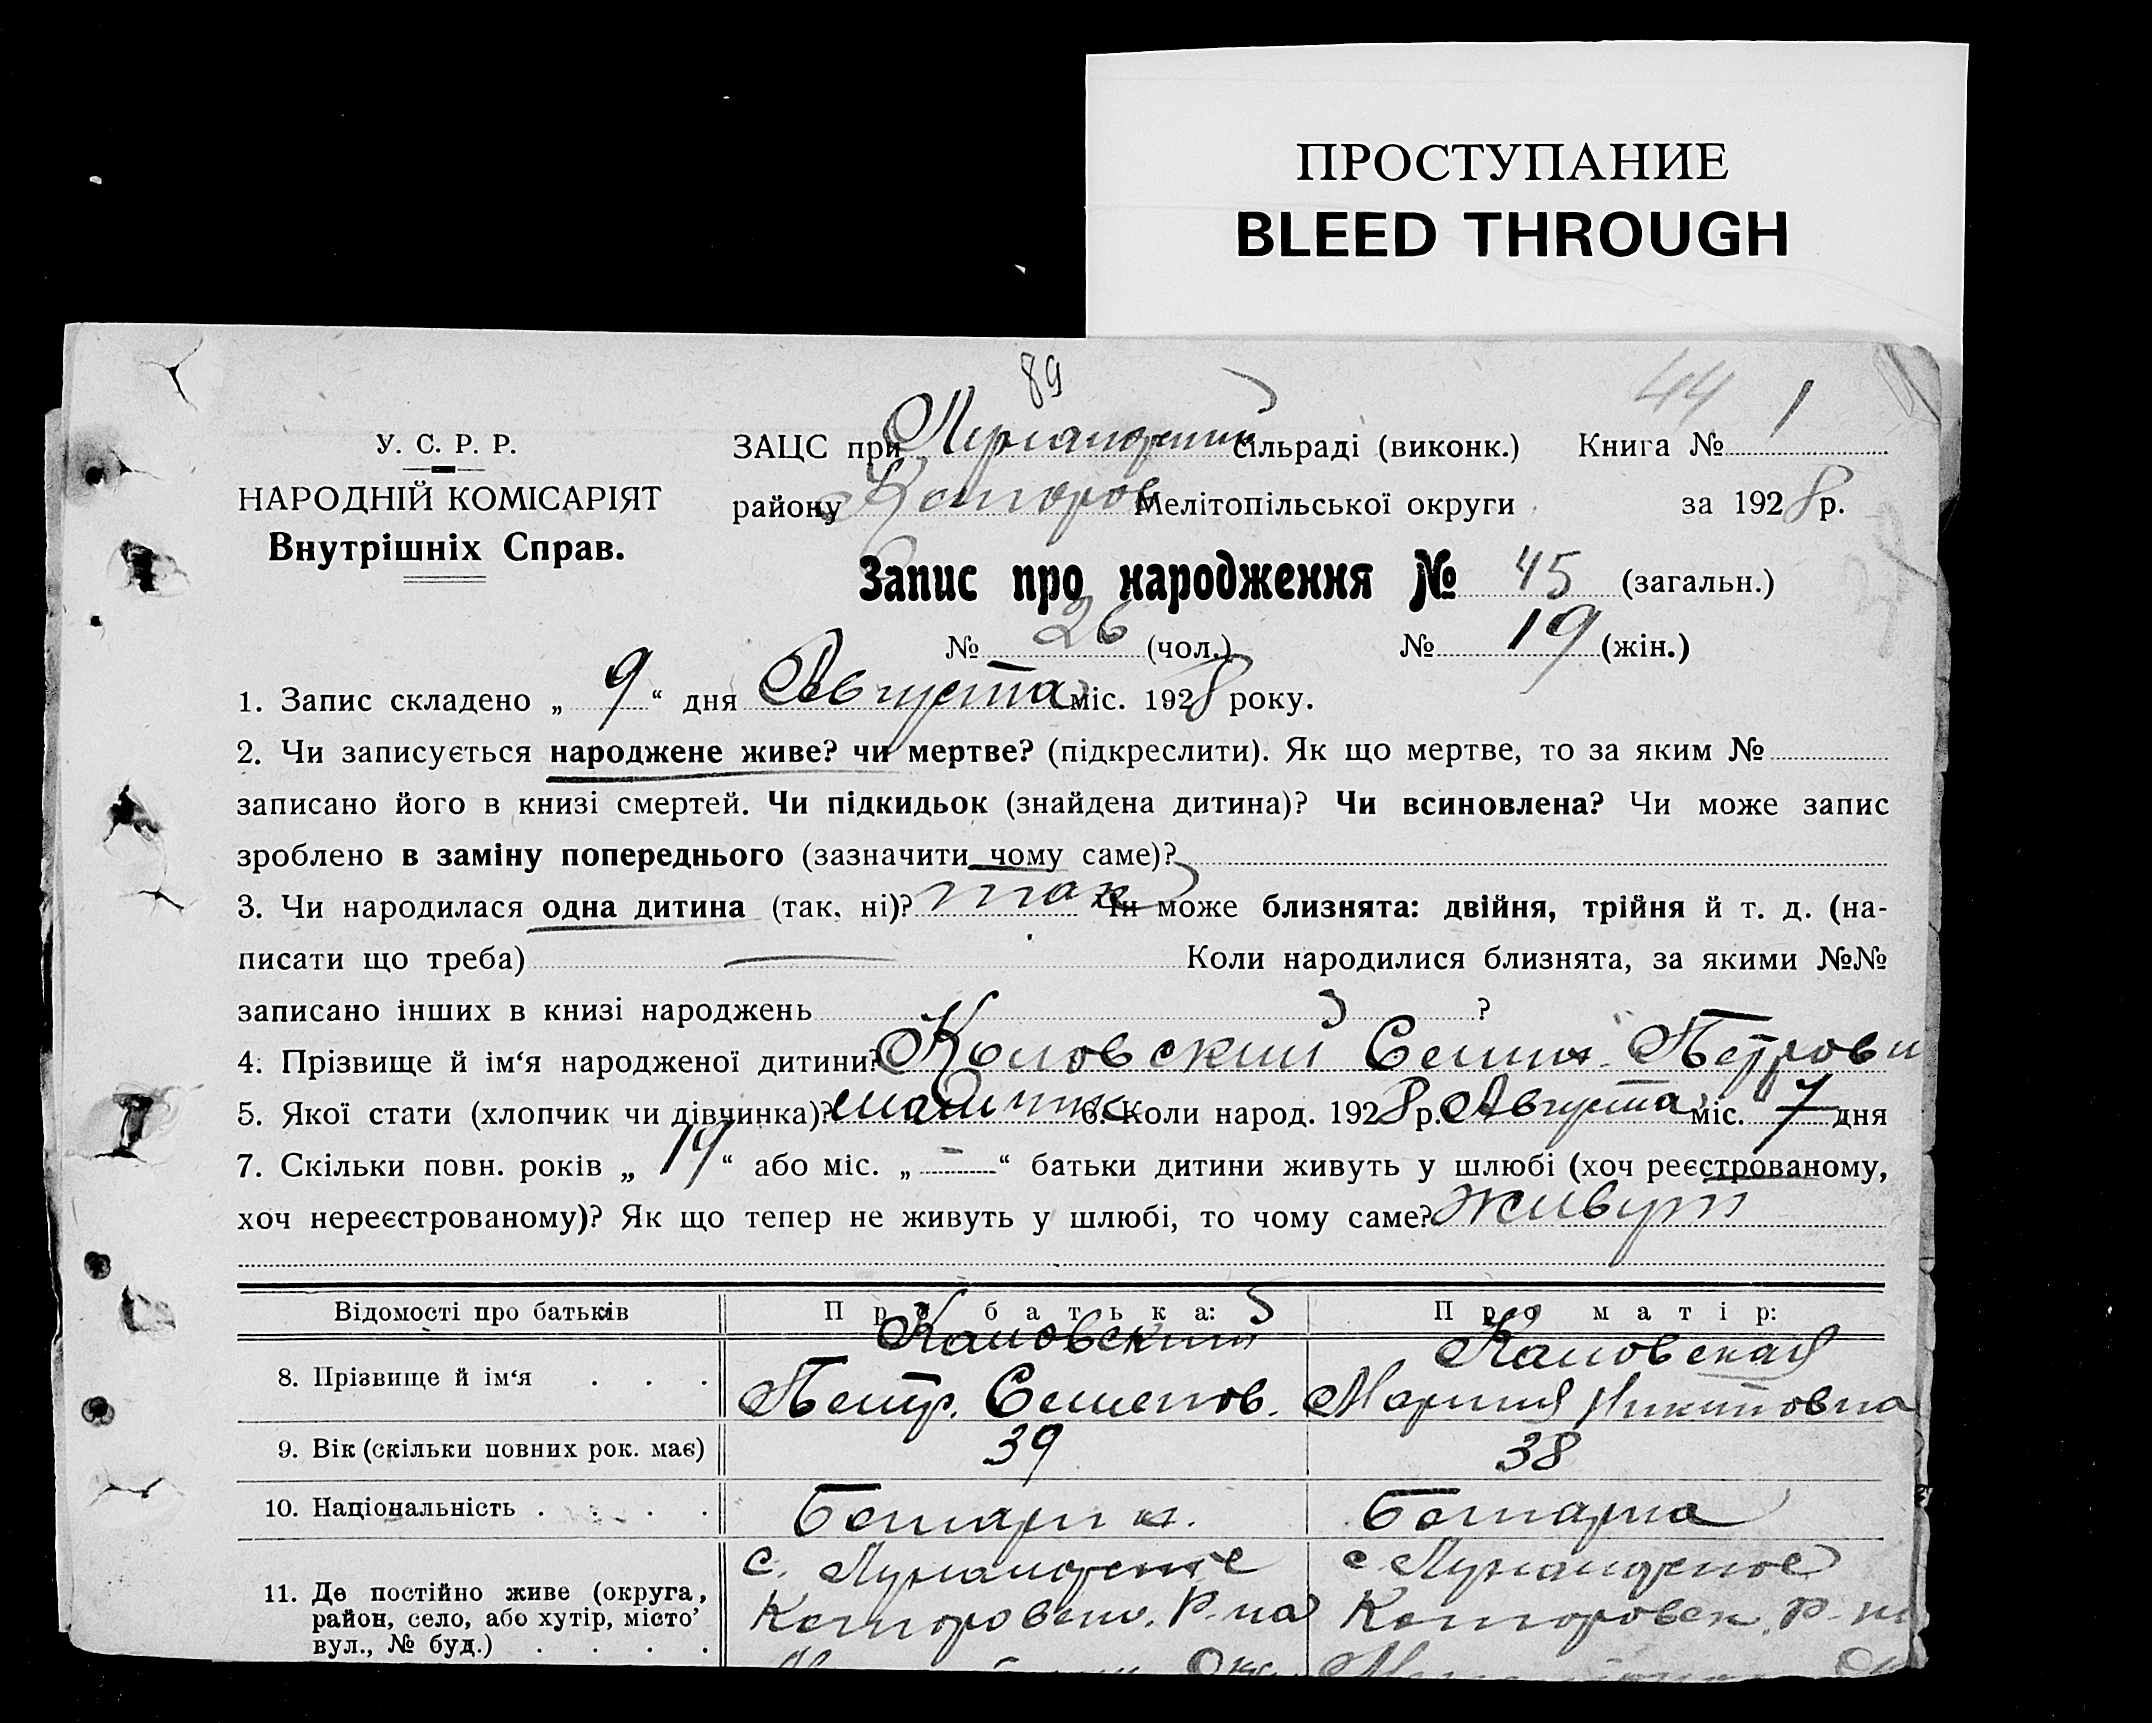 ПРОСТУПАНИЕ
BLEED THROUGH
89
44 1
У. С. Р. Р.
ЗАЦС при сільраді (виконк.) Книга №
НАРОДНІЙ КОМІСАРІЯТ
району Мелітопільської округи за 1928 р.
Внутрішніх Справ.
Запис про народження № 45 (загальн.)
№ 26 (чол.) № 19 (жін.)
1. Запис складено „ 9 “ дня Августа міс. 1928 року.
2. Чи записується народжене живе? чи мертве? (підкреслити). Як що мертве, то за яким №
записано його в книзі смертей. Чи підкидьок (знайдена дитина)? Чи всиновлена? Чи може запис
зроблено в заміну попереднього (зазначити чому саме)?
3. Чи народилася одна дитина (так, ні)? так Чи може близнята: двійня, трійня й т. д. (на-
писати що треба) Коли народилися близнята, за якими №№
записано інших в книзі народжень ?
4. Прізвище й ім‘я народженої дитини? Семен Петрови
5. Якої стати (хлопчик чи дівчинка)? 6. Коли народ. 1928 р. Августа міс. 7 дня
7. Скільки повн. років „ 14 “ або міс. „ - “ батьки дитини живуть у шлюбі (хоч реєстрованому,
хоч нереєстрованому)? Як що тепер не живуть у шлюбі, то чому саме? живут
Відомості про батьків Про батька: Про матір:
8. Прізвище й ім‘я . . . Петр. Семенов. Мария Никитовна
9. Вік (скільки повних рок. має) 39 38
10. Національність . . . . Болгарин. Болгарка
11. Де постійно живе (округа, с. с.
район, село, або хутір, місто’ Р-на Р-н
вул., № буд.) . . . .